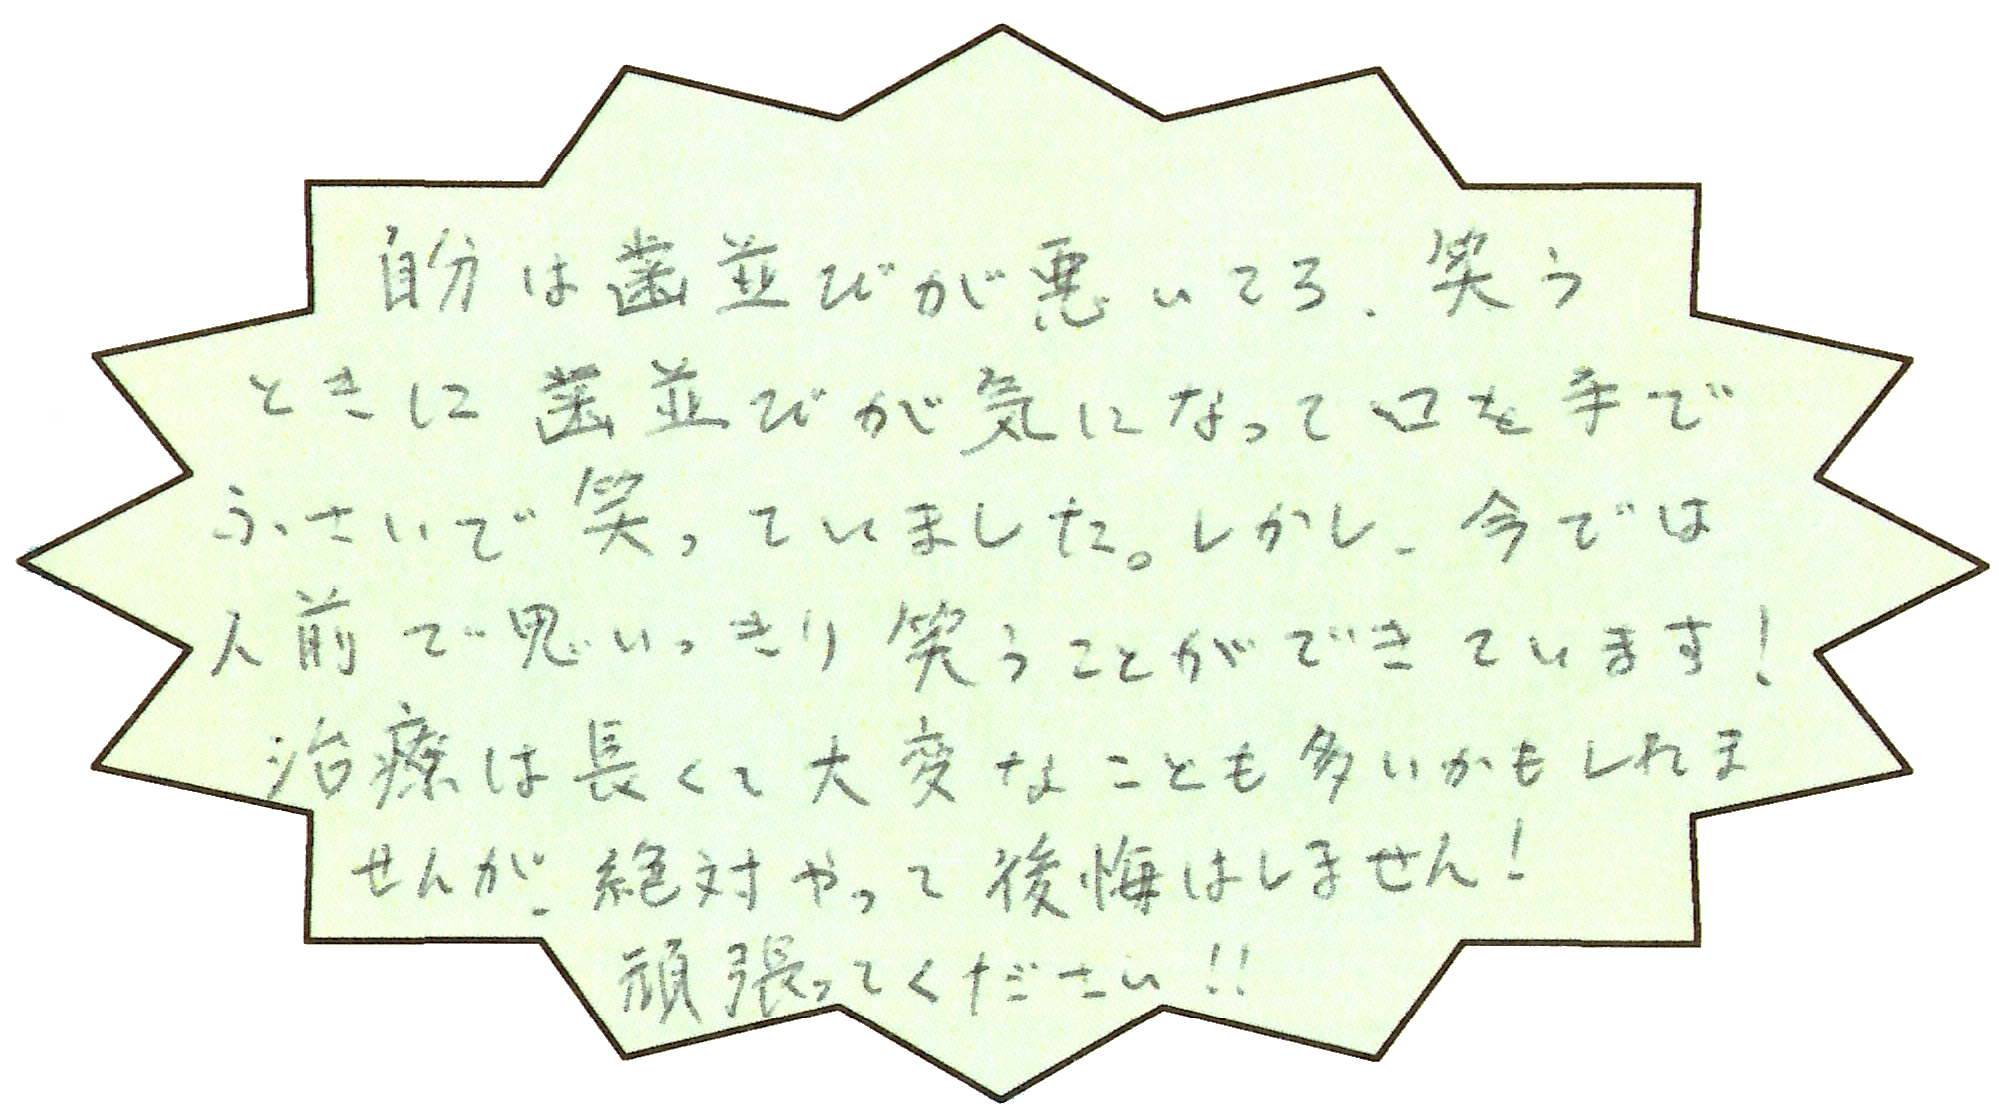 自分は歯並びが悪いてろ、笑う
ときに歯並びが気になって口を手で
ふさいで笑っていました。しかし、今では
人前で思いっきり笑うことができています!
治療は長くて大変なことも多いかもしれま
せんが、絶対やって後悔はしません!
頑張ってください!!